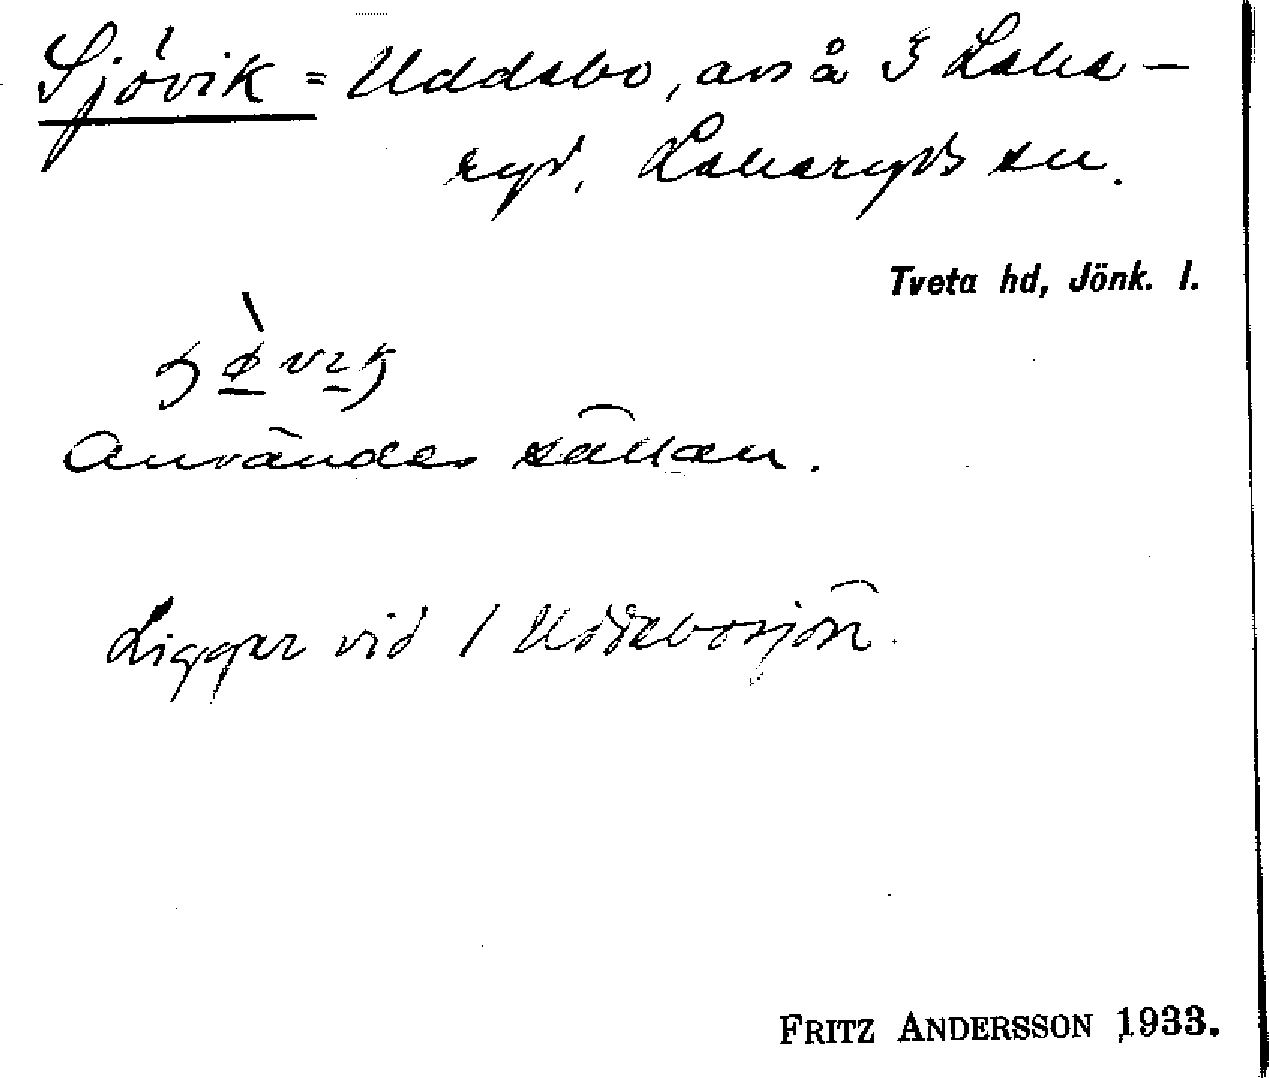 Sjövik = Uddebo, avs å 3 Laka-
ryd, Lekeryds sn.
Tveta hd, Jönk. l.
Användes sällan.
Ligger vid / Uddebosjön.
FRITZ ANDERSSON 1933.